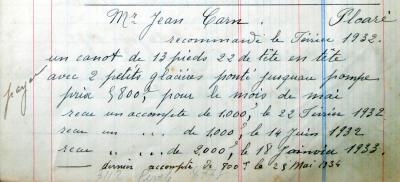 Mr Jean Carn. Ploaré
recommandé le Février 1932.
un canot de 13 pieds 22 de tête en tête
avec 2 petits glacires ponté jusqueau pompe
payer
prix 5800f pour le mois de mai
recu un accompte de 1.000f, le 22 Février 1932
recu un „ ... de 1.000f, le 14 Juin 1932
recu „ „ ... de 2,000f, le 18 Janvier 1933.
dernier accompte de 800f le 25 Mai 1934